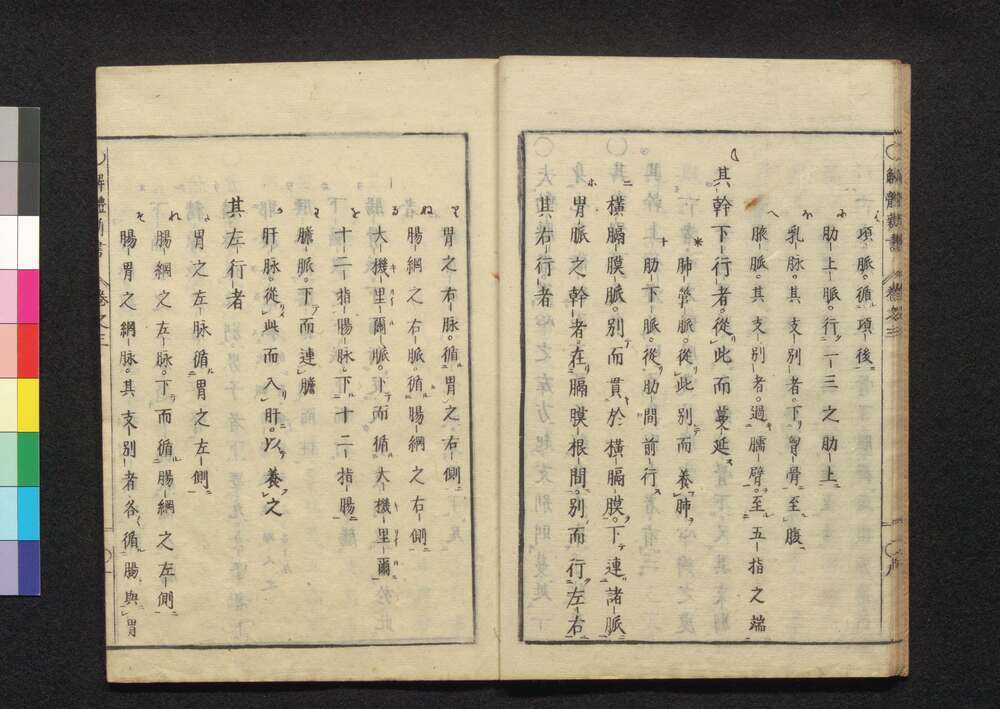 に項脈。循項後
ほ肋上脈。行一二三之肋上
乳脉。其支別者。下胷骨。至腹
へ腋脈。其支別者。過臑臂。至五指之端
其幹下行者。從此而蔓延。
*肺管脈。從此別而養肺。
十肋下脈。從肋間前行
横膈膜脈。別而貫於横膈膜。下連諸脈
胃脈之幹者。在膈膜根間。別而行左右
其右行者
胃之右脉。循胃之右側
ぬ腸網之右脈。循腸網之右側
る大機里爾脈。下而循大機里爾
を十二指腸脉。下十二指腸
膽脈。下而連膽
肝脉。從與而入肝。以養之
其左行者
胃之左脉循胃之左側
れ腸網之左脉。下而循腸網之左側
そ腸胃之網脉。其支別者各循腸與胃
解體新書 卷之三
解體新書 卷之三 八